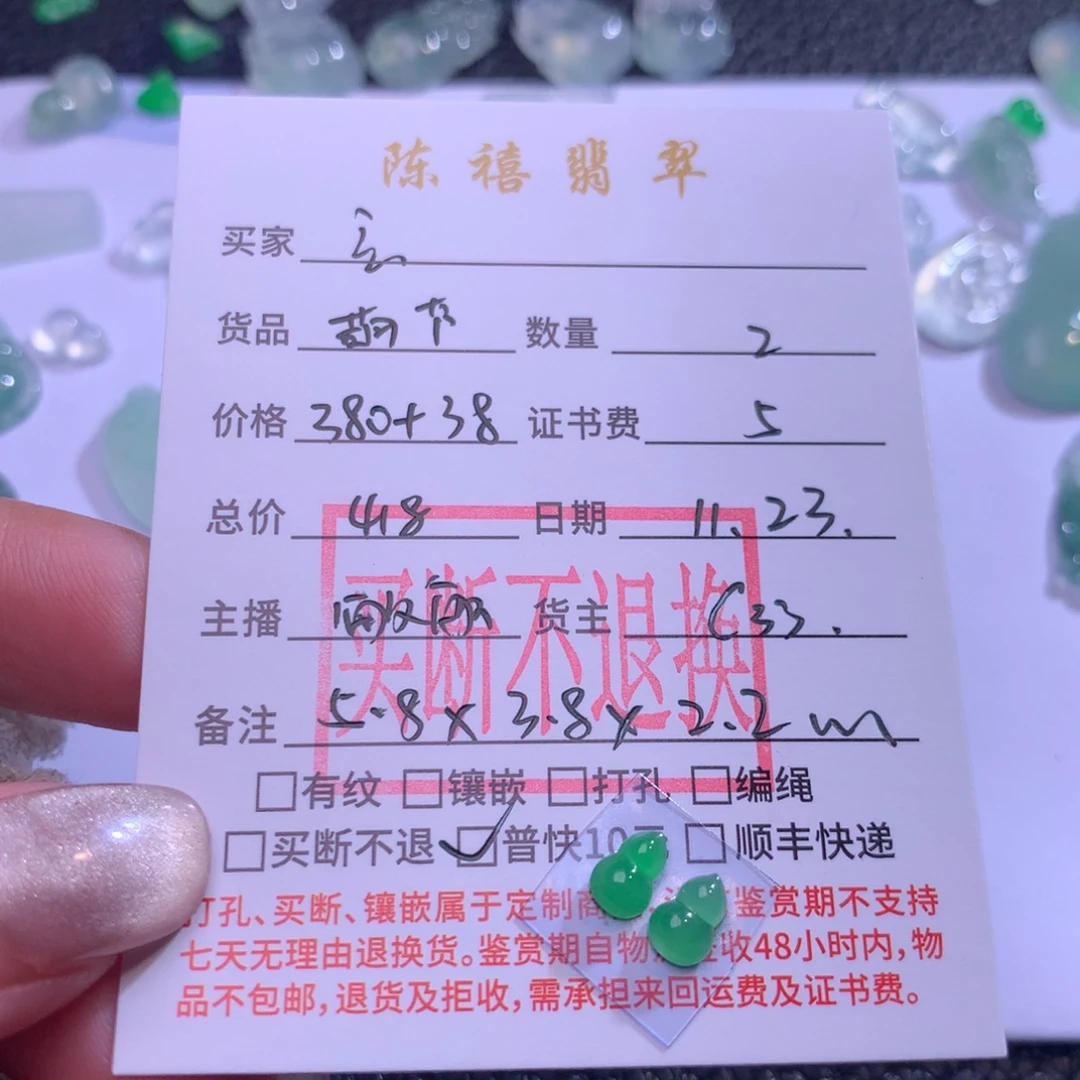 陈禧翡翠
买家
货品 葫芦 数量 2
价格 380+38 证书费 5
总价 418 日期 11.23.
主播 货主 C33.
买断不退换
备注 5.8x3.8x2.2m
□有纹 □镶嵌 □打孔 □编绳
□买断不退 ☑普快10元 □顺丰快递
打孔、买断、镶嵌属于定制商 鉴赏期不支持
七天无理由退换货。鉴赏期自物 签收48小时内,物
品不包邮,退货及拒收,需承担来回运费及证书费。